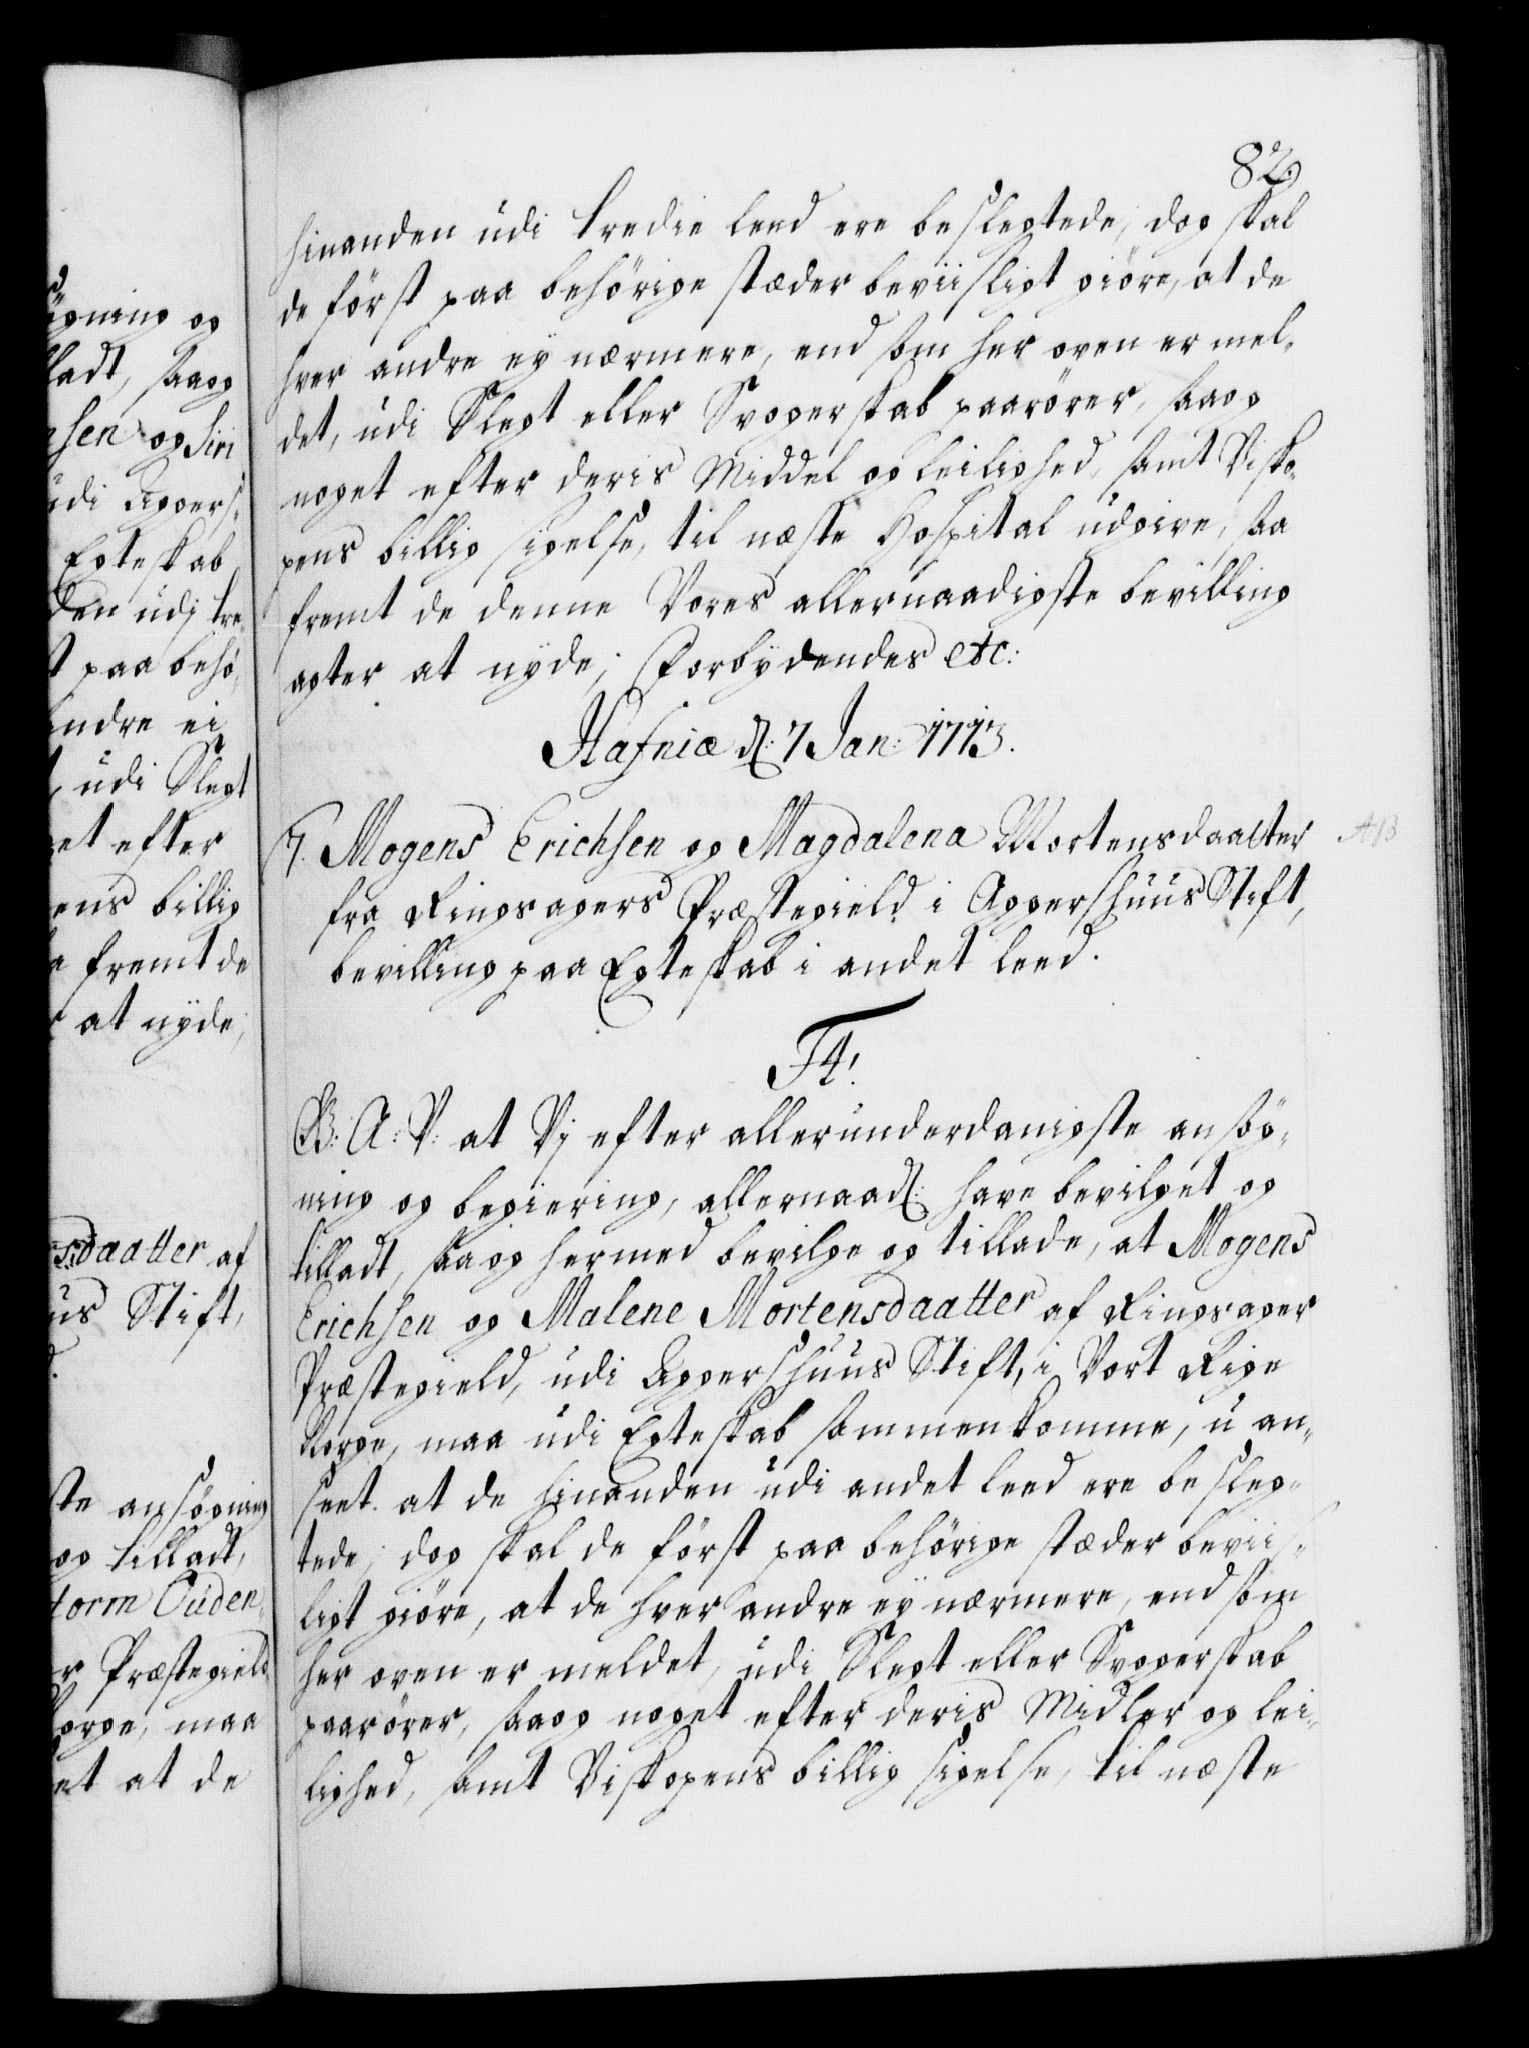 82.
hinanden udi tredie leed ere beslegtede, dog skal
de först paa behörige stæder beviisligt giöre, at de
hver andre eÿ nærmere, end som her oven er mel-
det, udi Slegt eller Svogerskab paarörer, saa og
noget efter deris Middel og leilighed, samt Bisko-
pens billig sigelse, til næste Hospital udgive, saa
fremt de denne Vores allernaadigste bevilling
agter at nÿde; Forbÿdendes etc:
Hafniæ d: 7 Jan: 1713.
7. Mogens Erichsen og Magdalena Mortensdaatter
fra Ringsagers Præstegield i Aggershuus Stift,
bevilling paa Egteskab i andet leed.
F4!
G: A: V: at Vj efter allerunderdanigste ansög-
ning og begiering, allernaad: have bevilget og
tilladt, saa og hermed bevilge og tillade, at Mogens
Erichsen og Malene Mortensdaatter af Ringsager
Præstegield, udi Aggershuus Stift, i Vort Rige
Norge, maa udi Egteskab sammenkomme, u an-
seet at de hinanden udi andet leed ere besleg-
tede, dog skal de först paa behörige stæder beviis-
ligt giöre, at de hver andre eÿ nærmere, end som
her oven er meldet, udi Slegt eller Svogerskab
paarörer, saa og noget efter deris Midler og lei-
lighed, samt Biskopens billig sigelse, til næste
AB
gning og
ladt, saa og
sen og Siri
udi Aggers-
Egteskab
den udj tre-
paa behö-
andre ei
udi Slegt
et efter
ens billig
fremt de
at nÿde;
sdaatter af
us Stift,
ste ansögning
og tilladt,
torm Ouden-
r Præstegield
orge, maa
et at de